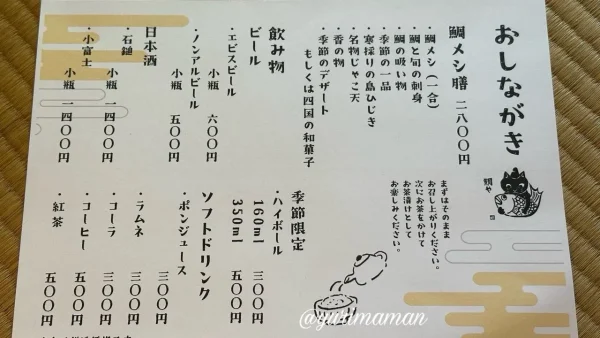 おしながき
鯛や
鯛メシ膳 二八〇〇円
・鯛メシ(一合)
・鯛と旬の刺身
・鯛の吸い物
・季節の一品
・寒採りの島ひじき
・名物じゃこ天
・香の物
・季節のデザート
もしくは四国の和菓子
まずはそのまま
お召し上がりください。
次にお茶をかけて
お茶漬けとして
お楽しみください。
飲み物
ビール
・エビスビール
小瓶 六〇〇円
・ノンアルビール
小瓶 五〇〇円
日本酒
・石鎚
小瓶 一四〇〇円
・小富士
小瓶 一四〇〇円
季節限定
・ハイボール
160ml 三〇〇円
350ml 五〇〇円
ソフトドリンク
・ポンジュース 三〇〇円
・ラムネ 三〇〇円
・コーラ 三〇〇円
・コーヒー 五〇〇円
・紅茶 五〇〇円
@yurimaman